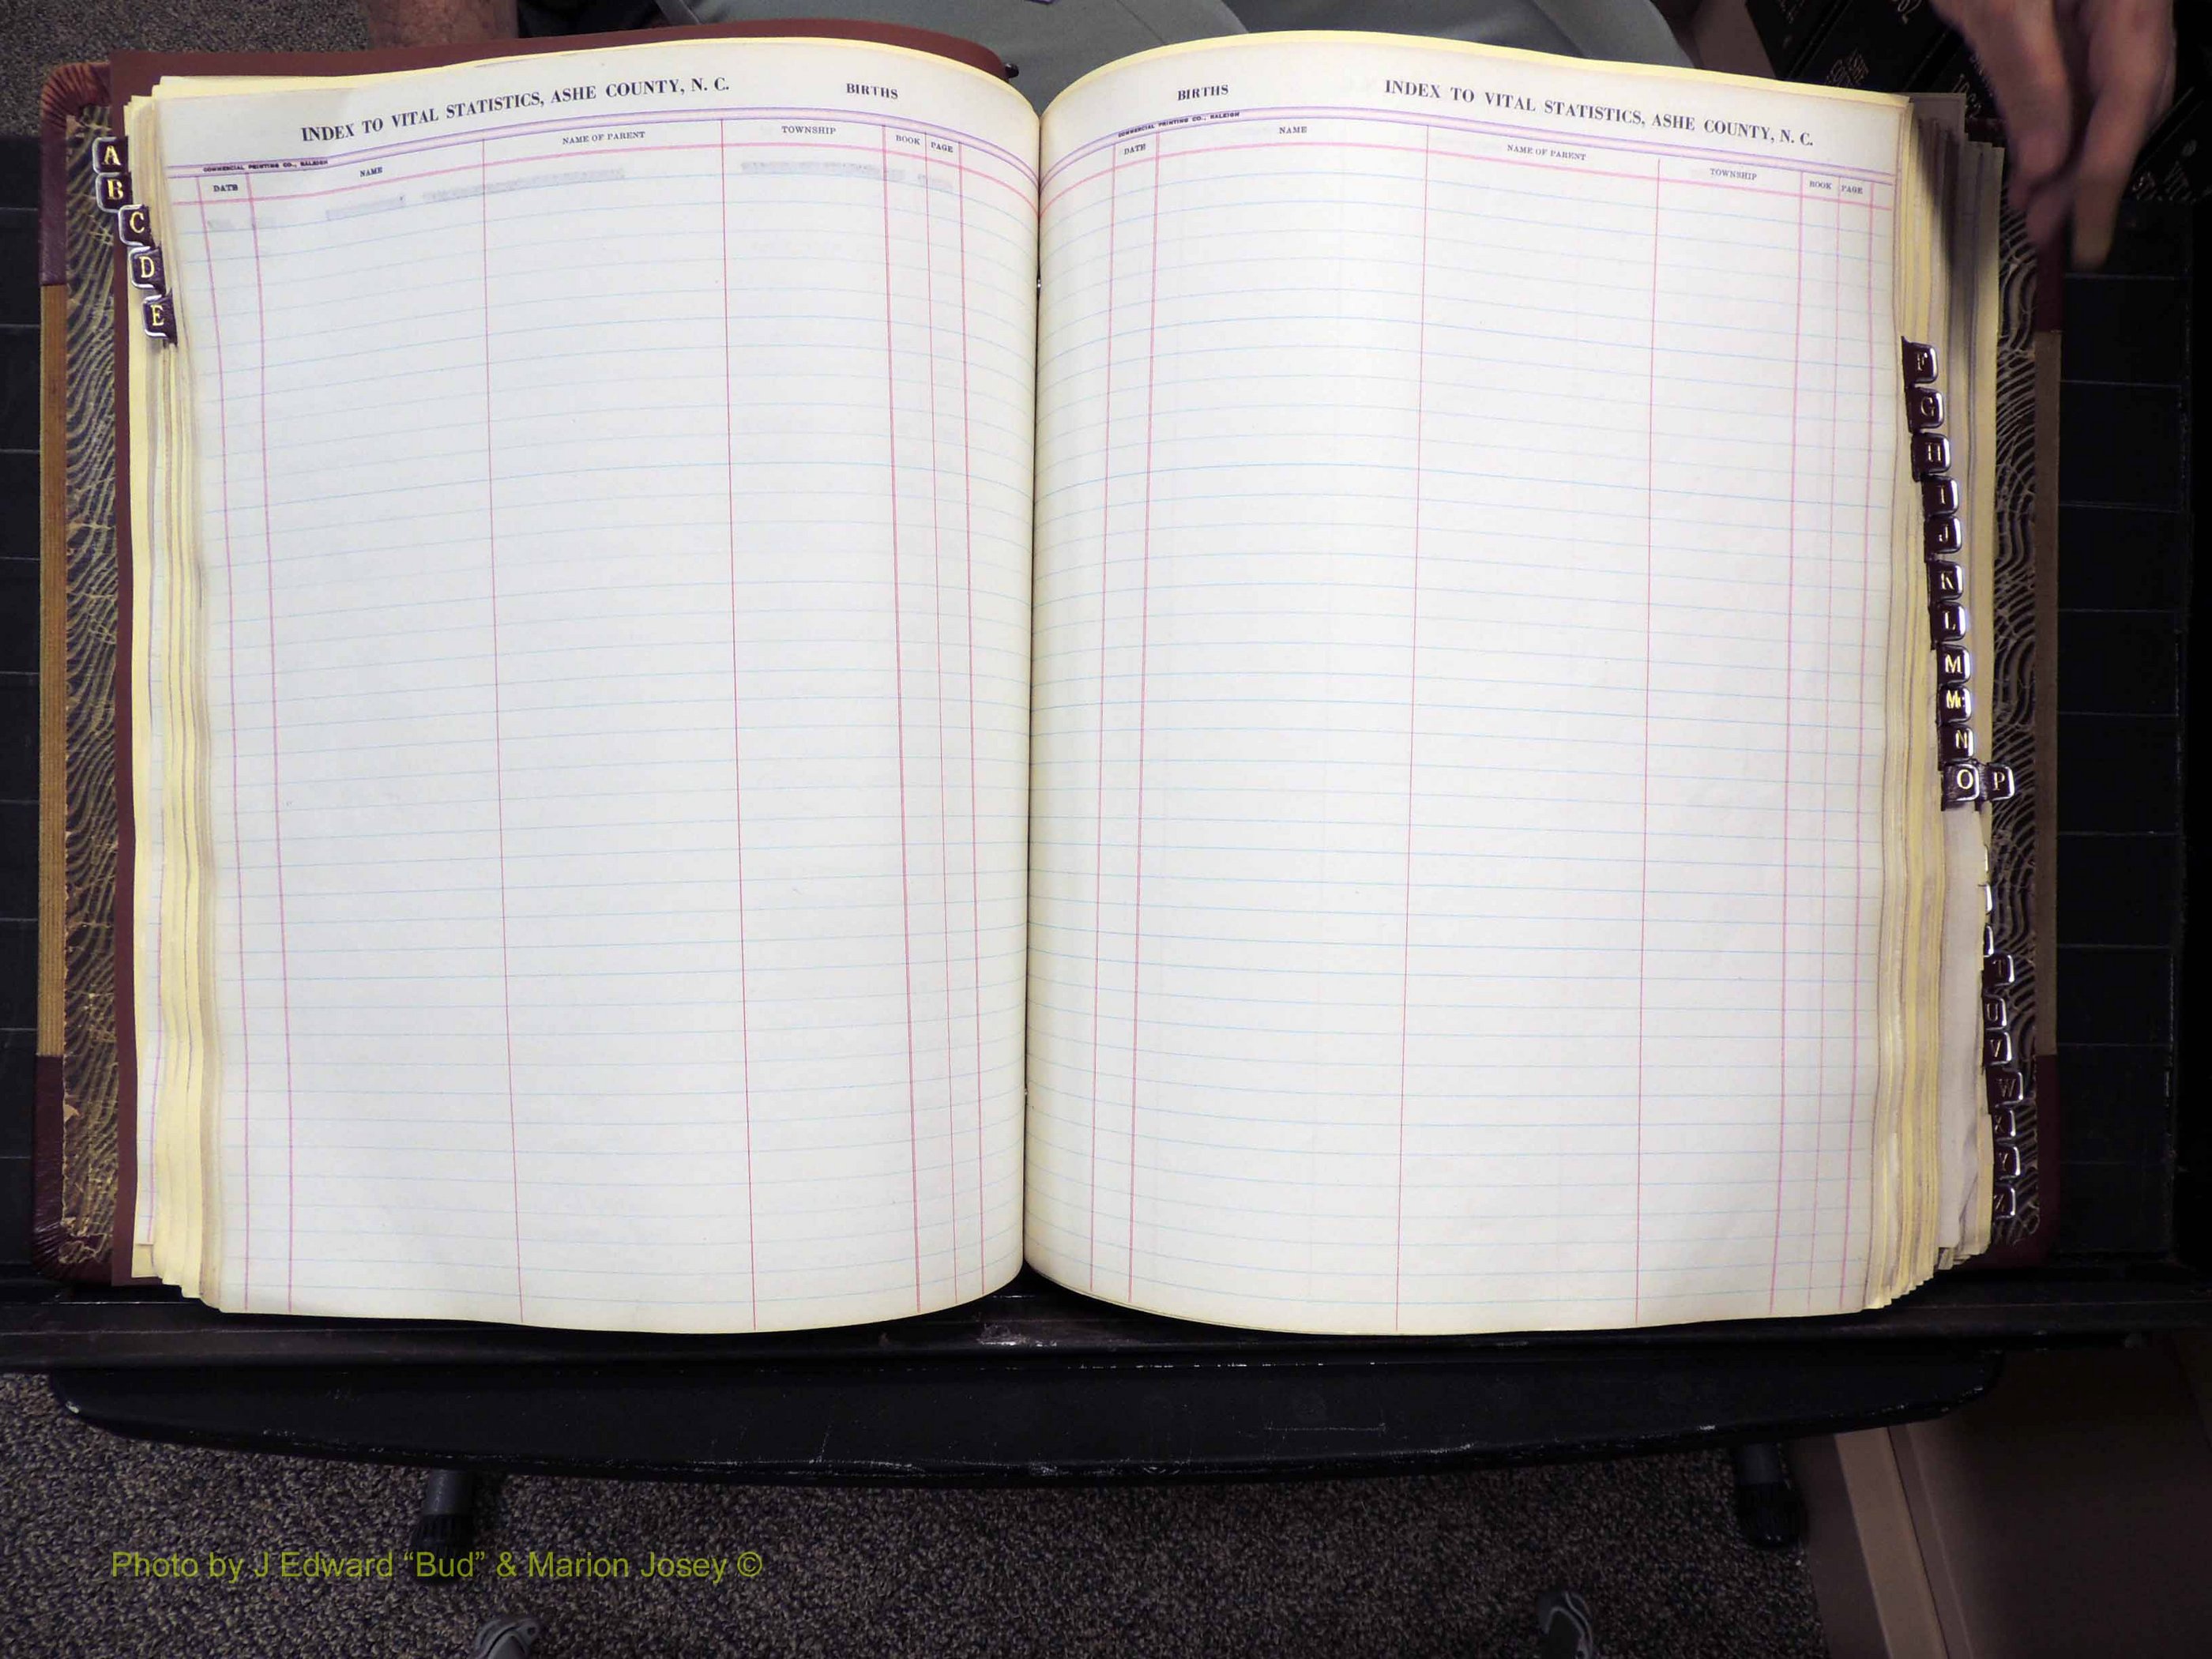 INDEX TO VITAL STATISTICS, ASHE COUNTY, N. C.
BIRTHS
COMMERCIAL PRINTING CO., RALEIGH
DATE
NAME
NAME OF PARENT
TOWNSHIP
BOOK
PAGE
BIRTHS
INDEX TO VITAL STATISTICS, ASHE COUNTY, N. C.
COMMERCIAL PRINTING CO., RALEIGH
DATE
NAME
NAME OF PARENT
TOWNSHIP
BOOK
PAGE
A
B
C
D
E
F
G
H
I
J
K
L
M
Mc
N
O
P
T
U
V
W
X
Y
Photo by J Edward “Bud” & Marion Josey ©